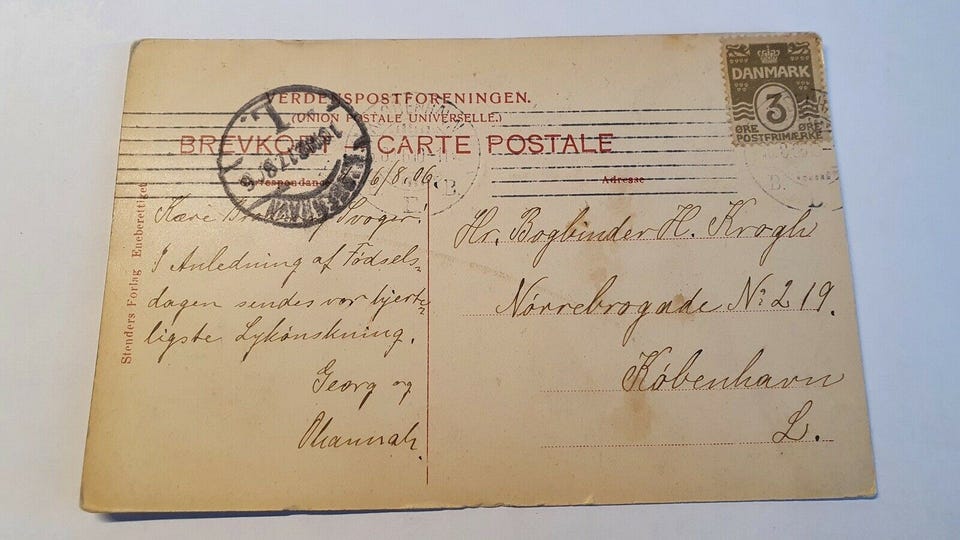 VERDENSPOSTFORENINGEN.
(UNION POSTALE UNIVERSELLE.)
BREVKORT — CARTE POSTALE
DANMARK
3
ØRE ØRE
POSTFRIMÆRKE
Correspondance
Adresse
6/8. 06.
B.
L
Kære Svoger!
I Anledning af Fødsels-
dagen sendes vor hjerte-
ligste Lykønskning.
Georg og
Hr. Bogbinder H. Krogh
Nørrebrogade No 219.
København
L.
Stenders Forlag Eneberettiget